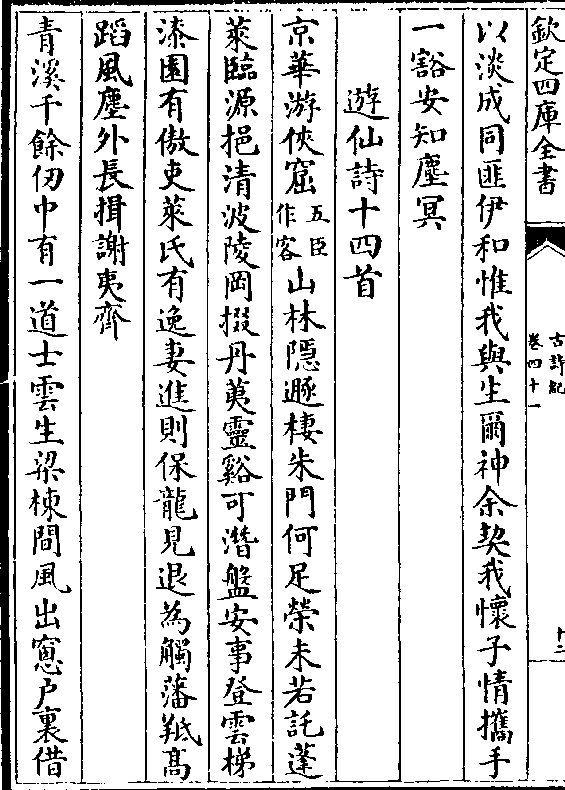 欽定四庫全書
古詩紀
卷四十一
十二
以淡成同匪伊和惟我與生爾神余契我懷子情攜手
一豁安知塵冥
遊仙詩十四首
京華游俠窟五臣作客山林隱遯棲朱門何足榮未若託蓬
萊臨源挹清波陵岡掇丹荑靈谿可潛盤安事登雲梯
漆園有傲吏萊氏有逸妻進則保龍見退為觸藩羝高
蹈風塵外長揖謝夷齊
青溪千餘仞中有一道士雲生梁棟間風出窻户裏借